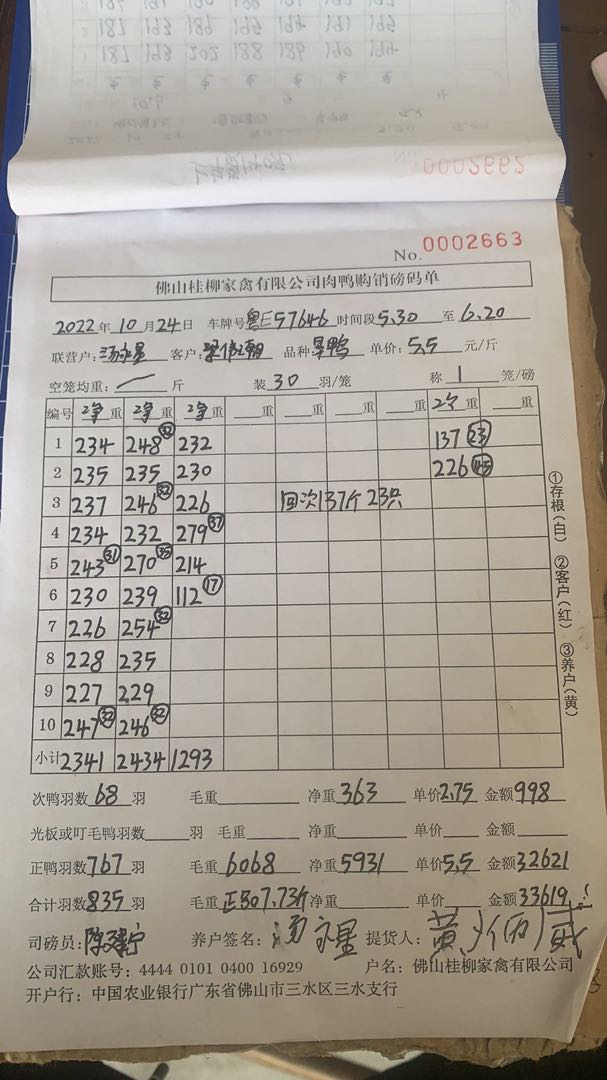 0002662
No. 0002663
佛山桂柳家禽有限公司肉鸭购销磅码单
2022年10月24日 车牌号粤E57646 时间段5.30 至 6.20
联营户:汤永星 客户:梁伟朝 品种 旱鸭 单价:5.5 元/斤
空笼均重: 一 斤 装 30 羽/笼 称 1 笼/磅
编号 净重 净重 净重 重 重 重 重 净重 重
1 234 248 32 232 137 23
2 235 235 230 226 45
3 237 246 32 226 回次137斤23只
4 234 232 279 37
5 243 31 270 35 214
6 230 239 112 17
7 226 254 32
8 228 235
9 227 229
10 247 32 246 32
小计 2341 2434 1293
①存根(白) ②客户(红) ③养户(黄)
次鸭羽数 68 羽 毛重 净重 363 单价2.75 金额 998
光板或叮毛鸭羽数 羽 毛重 净重 单价 金额
正鸭羽数 767 羽 毛重 6068 净重 5931 单价5.5 金额32621
合计羽数 835 羽 毛重 正既7.73斤 净重 单价 金额33619
司磅员: 养户签名: 汤永星 提货人:
公司汇款账号:4444 0101 0400 16929 户名:佛山桂柳家禽有限公司
开户行:中国农业银行广东省佛山市三水区三水支行